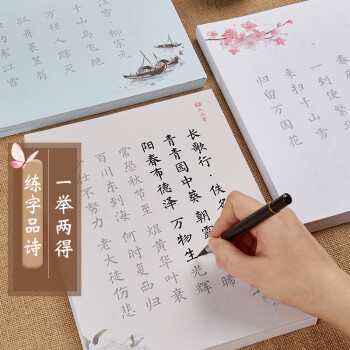 一举两得
练字品诗
长歌行·佚名
青青园中葵 朝露 晞
阳春布德泽 万物生光辉
常恐秋节至 焜黄华叶衰
百川东到海 何时复西归
不努力 老大徒伤悲
江雪 柳宗元
千山鸟飞绝
万径人踪灭
孤舟蓑笠翁
寒江雪
春
一到便繁
来扫千山雪
归留万国花